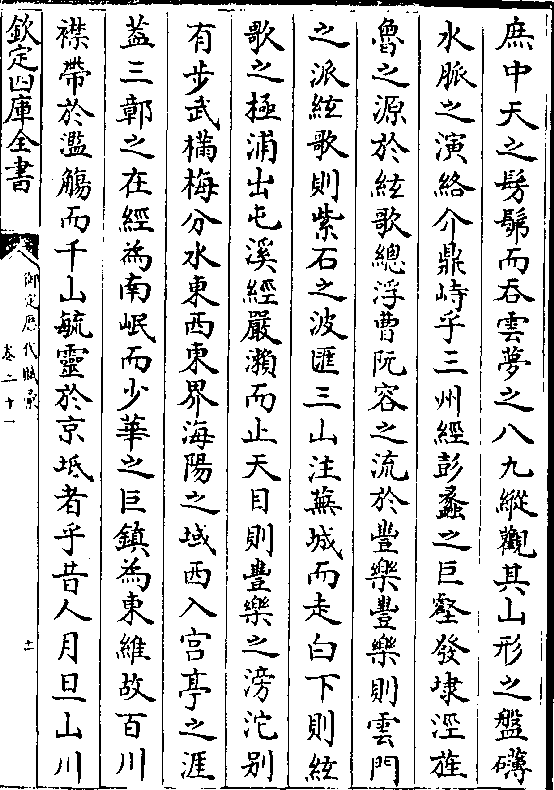 庶中天之髣髴而吞雲夢之八九縱觀其山形之盤礴
水脈之演絡介鼎峙乎三州經彭蠡之巨壑發埭涇旌
魯之源於絃歌總浮曹阮容之流於豐樂豐樂則雲門
之派絃歌則紫石之波匯三山注蕪城而走白下則絃
歌之極浦出屯溪經嚴瀨而止天目則豐樂之滂沱别
有步武橫梅分水東西東界海陽之域西入宫亭之涯
葢三鄣之在經為南岷而少華之巨鎮為東維故百川
襟帶於濫觴而千山毓靈於京坻者乎昔人月旦山川
欽定四庫全書
御定歴代賦彚
卷二十一
十一